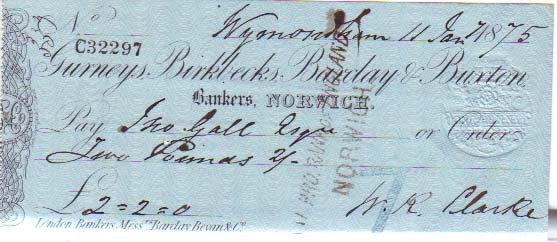 No
Wymondham 11 Jany 1875
C32297
Gurneys, Birkbecks, Barclay & Buxton,
Bankers, NORWICH.
Pay Jno Gall Esqre or Order
Two Pounds 2/-
£2=2=0
W. R. Clarke
London Bankers, Messrs Barclay Bevan & Co.
ENGLAND
NORWICH